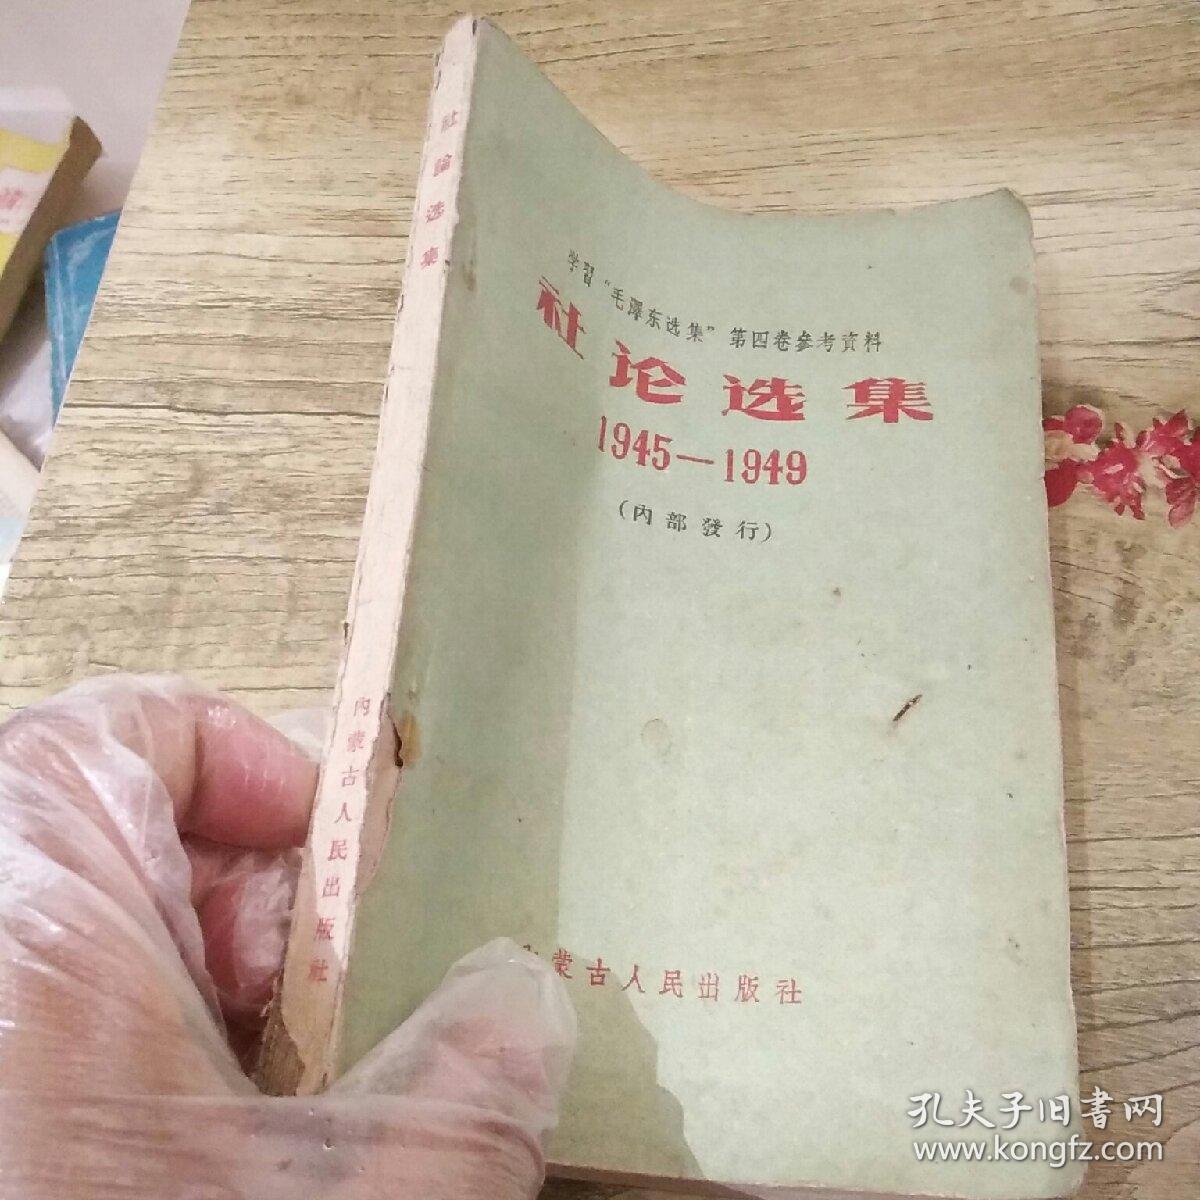 学習“毛澤东选集”第四卷參考資料
社论选集
1945—1949
(内部發行)
蒙古人民出版社
社論选集
内蒙古人民出版社
孔夫子旧書网
www.kongfz.com